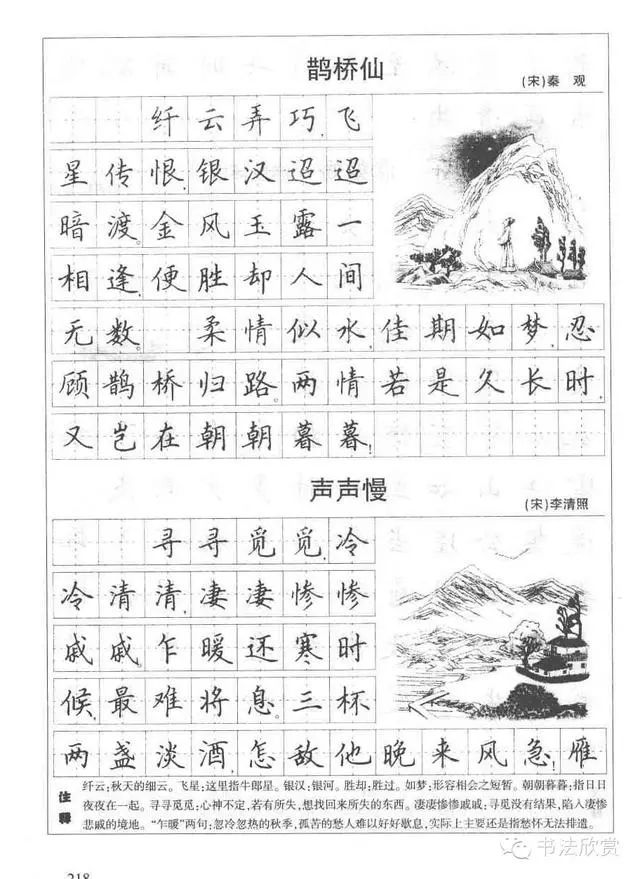 鹊桥仙
(宋)秦 观
纤云弄巧,飞
星传恨,银汉迢迢
暗渡。金风玉露一
相逢,便胜却人间
无数。 柔情似水,佳期如梦,忍
顾鹊桥归路。两情若是久长时,
又岂在朝朝暮暮!
声声慢
(宋)李清照
寻寻觅觅,冷
冷清清,凄凄惨惨
戚戚。乍暖还寒时
候,最难将息。三杯
两盏淡酒,怎敌他晚来风急!雁
注释
纤云:秋天的细云。飞星:这里指牛郎星。银汉:银河。胜却:胜过。如梦:形容相会之短暂。朝朝暮暮:指日日
夜夜在一起。寻寻觅觅:心神不定,若有所失,想找回来所失的东西。凄凄惨惨戚戚:寻觅没有结果,陷入凄惨
悲戚的境地。“乍暖”两句:忽冷忽热的秋季,孤苦的愁人难以好好歇息,实际上主要还是指愁怀无法排遣。
书法欣赏
218